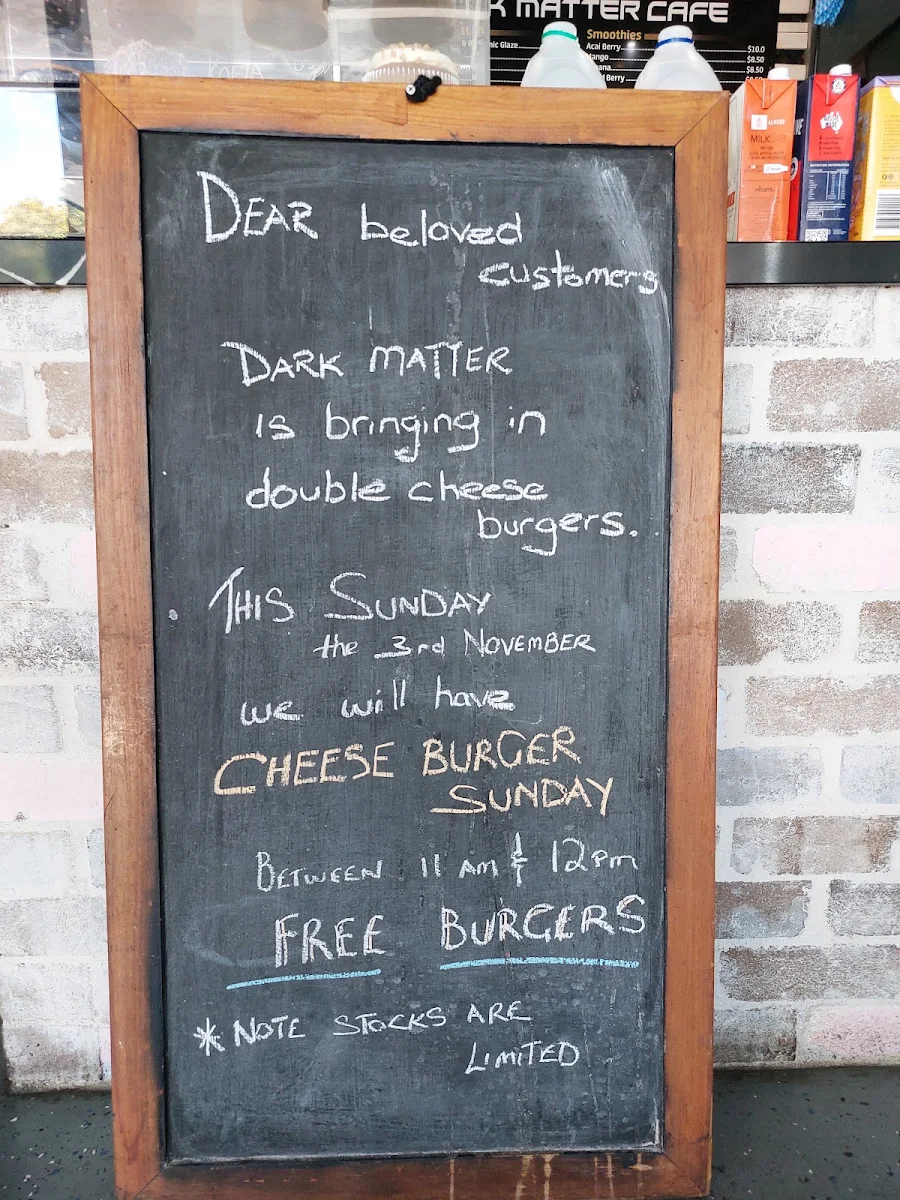 K MATTER CAFE
Smoothies
Acai Berry $10.0
$8.50
$8.50
Berry $8.50
Glaze
MILK
DEAR beloved
customers
DARK MATTER
is bringing in
double cheese
burgers.
THIS SUNDAY
the 3rd NOVEMBER
we will have
CHEESE BURGER
SUNDAY
BETWEEN 11 AM & 12 pm
FREE BURGERS
* NOTE STOCKS ARE
LIMITED